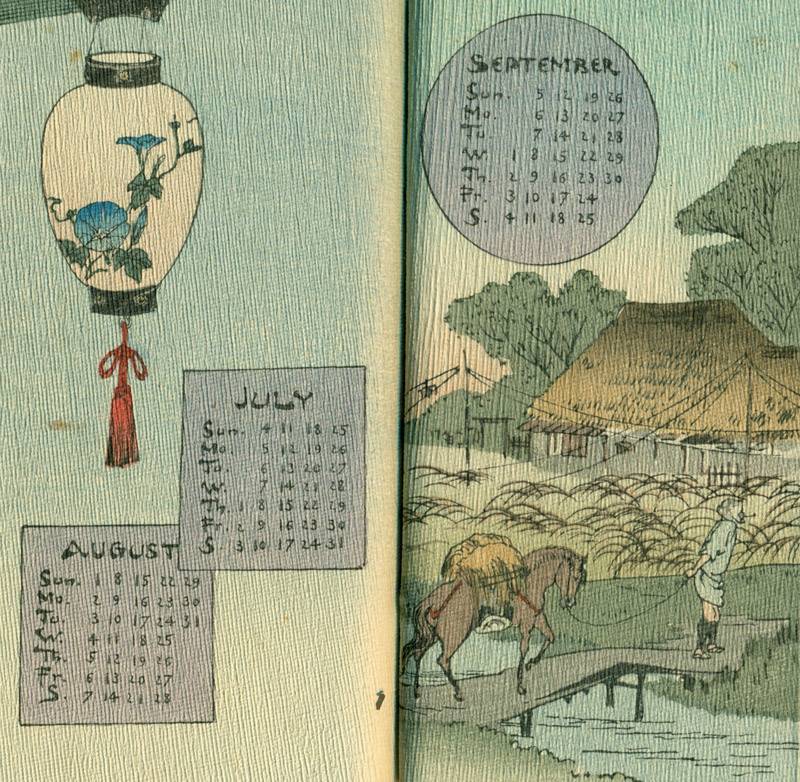 JULY
Sun. 4 11 18 25
Mo. 5 12 19 26
Tu. 6 13 20 27
W. 7 14 21 28
Th. 1 8 15 22 29
Fr. 2 9 16 23 30
S. 3 10 17 24 31
AUGUST
Sun. 1 8 15 22 29
Mo. 2 9 16 23 30
Tu. 3 10 17 24 31
W. 4 11 18 25
Th. 5 12 19 26
Fr. 6 13 20 27
S. 7 14 21 28
SEPTEMBER
Sun. 5 12 19 26
Mo. 6 13 20 27
Tu. 7 14 21 28
W. 1 8 15 22 29
Th. 2 9 16 23 30
Fr. 3 10 17 24
S. 4 11 18 25